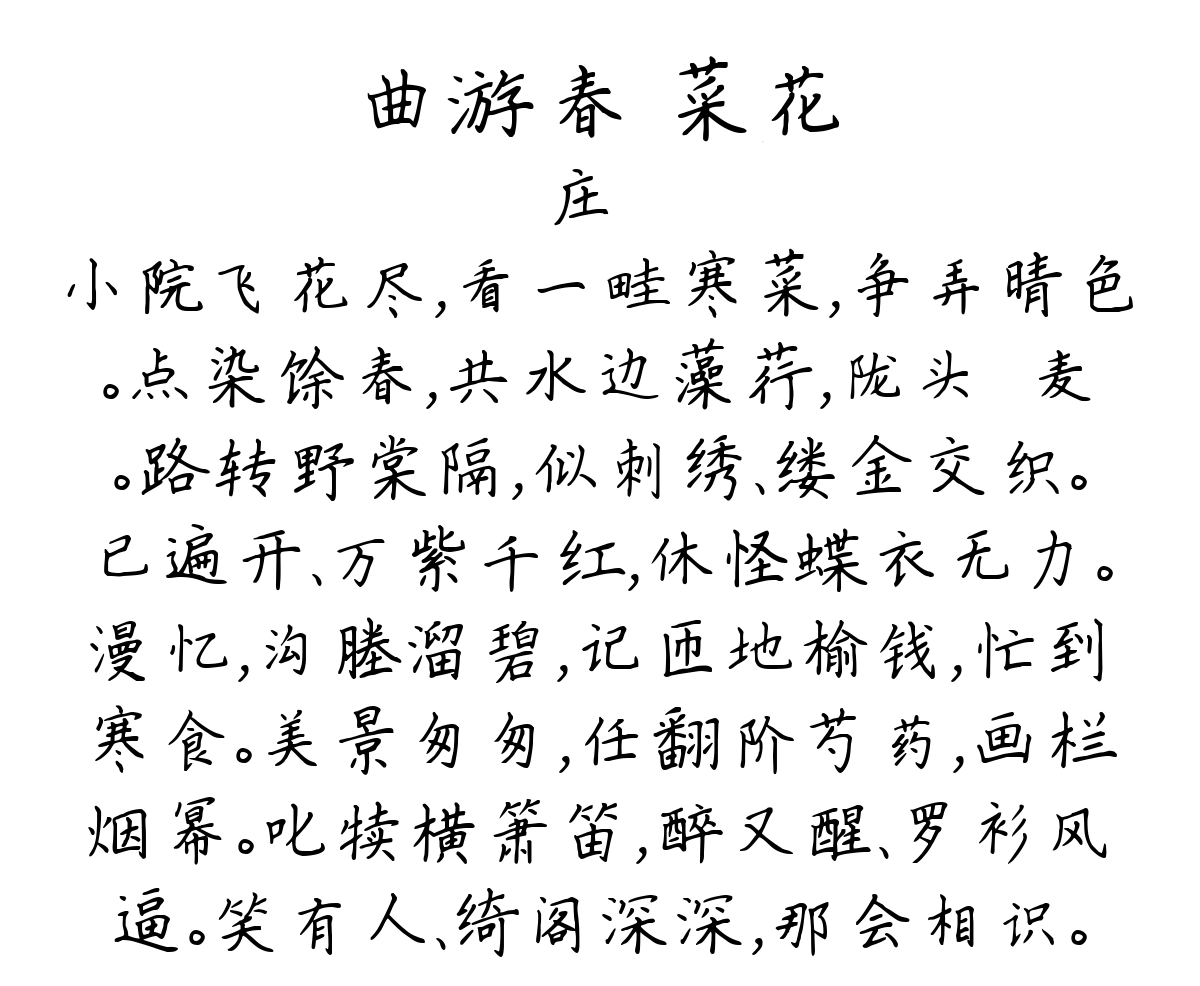 曲游春 菜花
庄
小院飞花尽,看一畦寒菜,争弄晴色
。点染馀春,共水边藻荇,陇头 麦
。路转野棠隔,似刺绣、缕金交织。
已遍开、万紫千红,休怪蝶衣无力。
漫忆,沟塍溜碧,记匝地榆钱,忙到
寒食。美景匆匆,任翻阶芍药,画栏
烟幂。叱犊横箫笛,醉又醒、罗衫风
逼。笑有人、绮阁深深,那会相识。